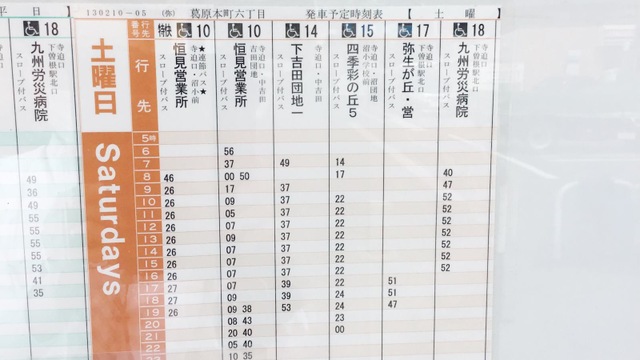 平 日 】
130210-05 (弥) 葛原本町六丁目 発車予定時刻表 【 土 曜 】
18
九州労災病院
寺迫口
下曽根駅北口
スロープ付バス
49
36
49
55
55
55
55
53
41
35
土曜日 Saturdays
番号 行先
行先
特快 10
★連節バス★
寺迫口・沼小前
恒見営業所
スロープ付バス
10
寺迫口・中吉田
吉田団地
恒見営業所
スロープ付バス
14
寺迫口・中吉田
下吉田団地一
スロープ付バス
15
寺迫口・沼団地
沼小学校前
四季彩の丘5
スロープ付バス
17
寺迫口
下曽根駅北口
弥生が丘・営
スロープ付バス
18
寺迫口
下曽根駅北口
九州労災病院
スロープ付バス
5時
6 56
7 37 49 14
8 46 00 50 17 40
9 26 17 37 47
10 26 09 37 22 52
11 26 05 37 22 52
12 26 07 37 22 52
13 26 09 37 22 52
14 26 07 37 22 52
15 26 07 37 22 52
16 26 07 37 22 52
17 27 07 39 24 51
18 27 09 39 24 51
19 26 09 38 53 23 47
20 08 43 00
21 20 40
22 05 40
23 10 35